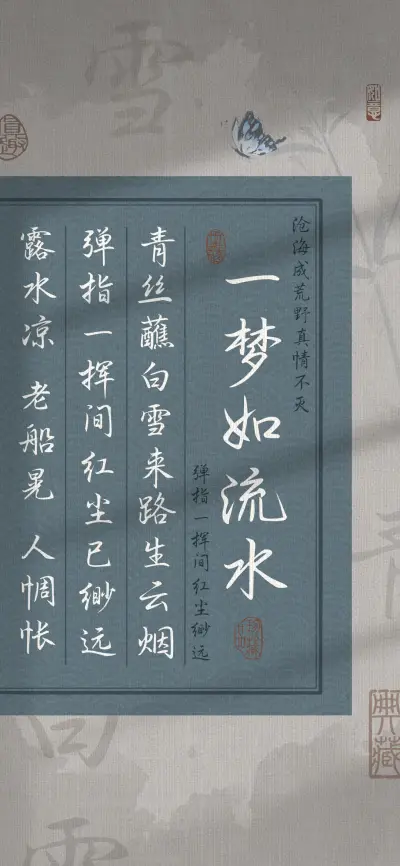 沧海成荒野真情不灭
一梦如流水
弹指一挥间红尘缈远
青丝蘸白雪来路生云烟
弹指一挥间红尘已缈远
露水凉 老船晃 人惆怅
雪
青
白
雪
典藏